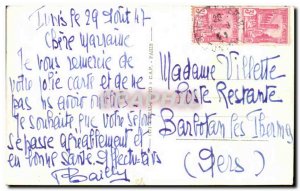 Tunis le 29 Août 47
Chère Marraine
Je vous remercie de
votre jolie carte et de ne
pas m'avoir oublié
Je souhaite que votre séjour
se passe agréablement et
en bonne santé. Affectueux
Bailly
Madame Villette
Poste Restante
Barbotan les Thermes
(Gers)